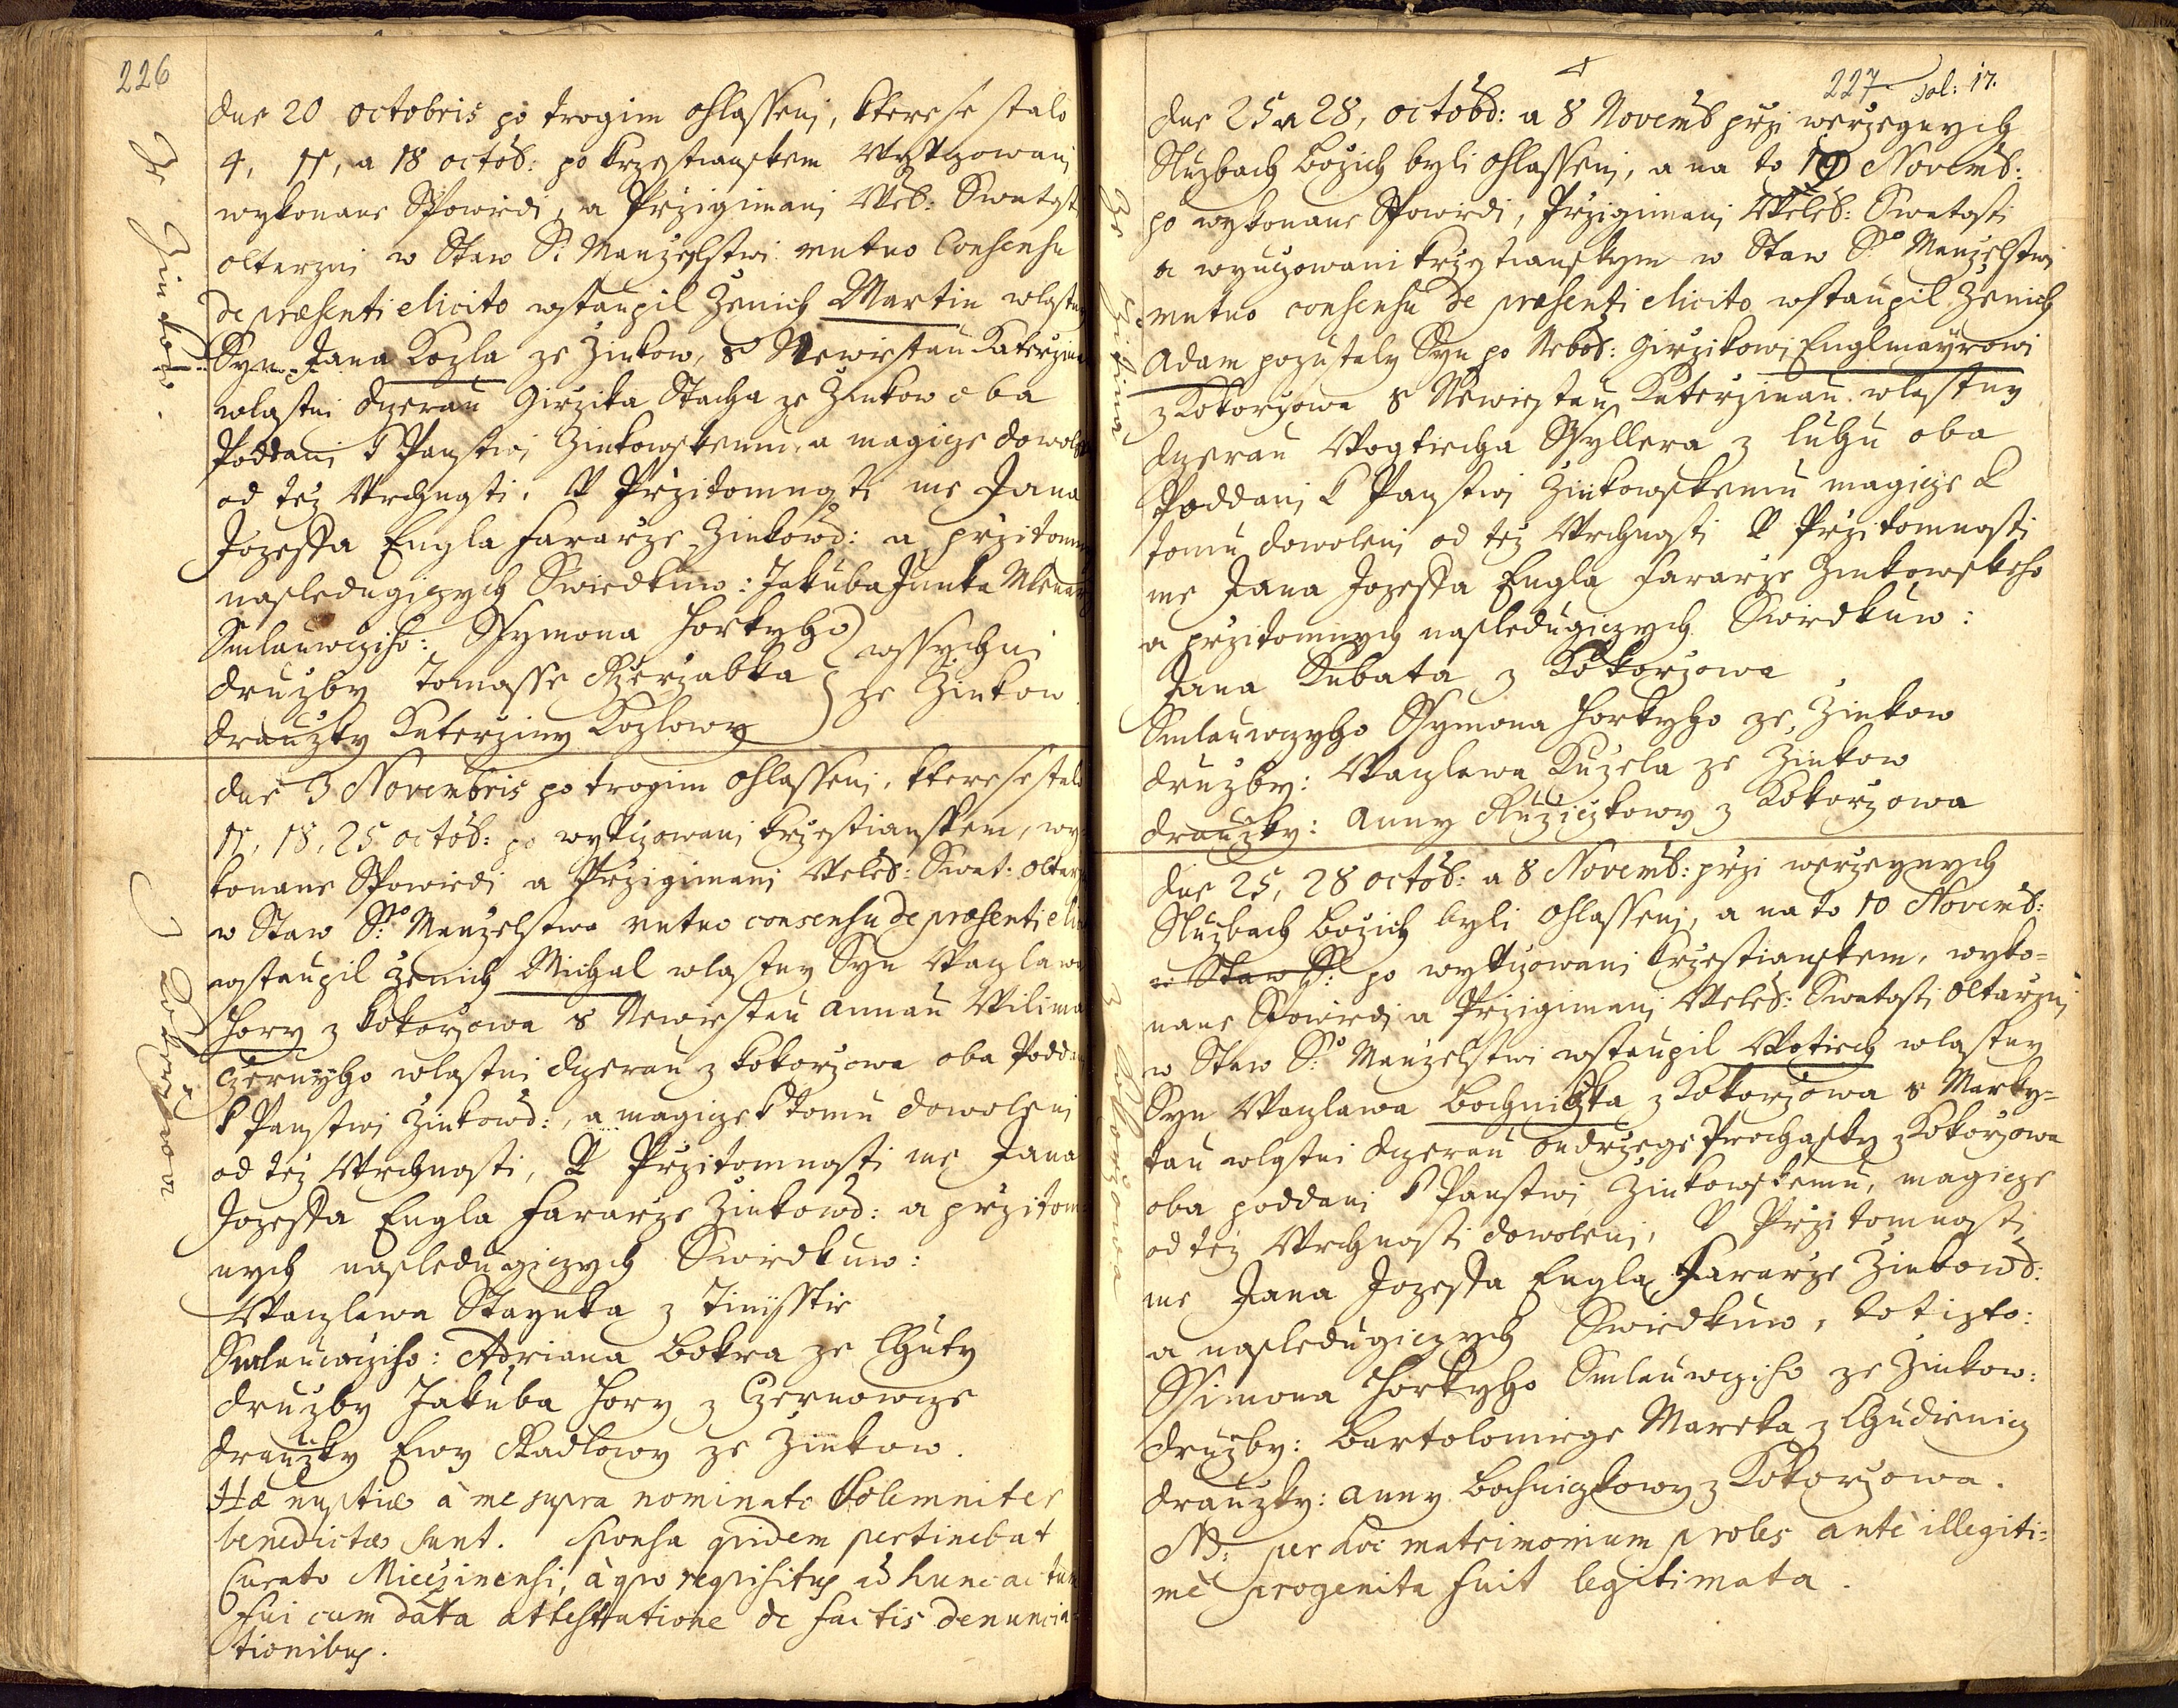 226
Ze Zinkow.
dne 20 octobris po trogim ohlassenj, ktere se stalo
4, 11, a 18 octob: po krzestianskem Wyptzowanj
wykonane Spowiedi, a Przigimanj Weleb: Swatosti
oltarznj w Staw S: Manzelstwi mutuo Consensu
de præsenti elicito wstaupil Zenich Martin wlastny
Syn Jana Kozla ze Zinkow, s Newiestau Katerzinau
wlastni dczerau Girzika Stacha ze Zinkow oba
Poddani k Panstwj Zinkowskemu, a magicze dowolenj
od tez Wrchnosti. W Przitomnosti me Jana
Jozeffa Engla fararze Zinkowsk: a przitomnych
nasledugiczych Swiedkuw: Jakuba Junka Mlenarz
Smlauwcziho: Ssymona Horkyho
druzby Tomasse Rzerzabka
drauzky Katerziny Kozlowy
wssychni
ze Zinkow
Z Kokorzowa
dne 3 Novembris po trogim ohlassenj, ktere se stalo
11, 18, 25 octob: po wyptzowanj krzestianskem, wy-
konane Spowiedi a Przigimanj Weleb: Swat: oltarz
w Staw S:to Manzelstwa mutuo consensu de præsenti elicito
wstaupil Zenich Michal wlastny Syn Waczlawa
Hory z Kokorzowa s Newiestau Annau Wilima
Czernyho wlastni dczerau z Kokorzowa oba Poddani
k Panstwj Zinkowsk:, a magicze k tomu dowolenj
od tez Wrchnosti, W Przitomnosti me Jana
Jozeffa Engla fararze Zinkowsk: a przitom-
nych nasledugiczych Swiedkuw:
Waczlawa Staynka z Tinisstie
Smlauwcziho: Adriana Bokra ze Lhuty
druzby Jakuba Hory z Czernowicze
drauzky Ewy Radlowy ze Zinkow.
Hæ nuptiæ à me supra nominato Solemniter
benedictæ sunt. Sponsa quidem pertinebat
Curato Mieczinensi, à quo requisitus ad hunc actum
fui cum data attestatione de factis denuncia-
tionibus.
227 fol: 17.
Ze Zitina
dne 25 a 28, octobr: a 8 Novemb przi werzegnych
Sluzbach Bozich byli ohlassenj, a na to 10 Novemb:
po wykonane Spowiedi, Przigimanj Weleb: Swatosti
a wyuczowani krzestianskym w Staw S:to Manzelstwj
mutuo consensu de præsenti elicito wstaupil Zenich
Adam pozustaly Syn po Nebos: Girzikowi Englmayrowi
z Kokorzowa s Newiestau Katerzinau wlastny
dczerau Wogtiecha Ssyllera z Luhu oba
Poddanj k Panstwj Zinkowskemu magicze k
tomu dowolenj od tez Wrchnosti W Przitomnosti
me Jana Jozeffa Engla fararze Zinkowskeho
a przitomnych nasledugiczych Swiedkuw:
Jana Kubata z Kokorzowa
Smlauwczyho Ssymona Horkyho ze Zinkow
druzby: Waczlawa Kuzela ze Zinkow
drauzky: Anny Ruziczkowy z Kokorzowa
Z Kokorzowa
dne 25, 28 octob: a 8 Novemb: przi werzegnych
Sluzbach Bozich byli ohlassenj, a na to 10 Novemb:
w Staw S: po wyptzowanj krzestianskem, wyko-
nane Spowiedi a Przigimanj Weleb: Swatosti Oltarznj
w Staw S:o Manzelstwi wstaupil Wotiech wlastny
Syn Waczlawa Bochniczka z Kokorzowa s Marky-
tau wlastni dczerau Ondrzege Prochasky z Kokorzowa
oba poddani k Panstwj Zinkowskemu, magicze
od tez Wrchnosti dowolenj, W Przitomnosti
me Jana Jozeffa Engla Fararze Zinkowsk:
a nasledugiczych Swiedkuw, totizto:
Ssimona Horkyho Smlauwcziho ze Zinkow:
druzby: Bartolomiege Mareka z Chudienicz
drauzky: Anny Bochniczkowy z Kokorzowa.
NB: per hoc matrimonium proles antè illegiti-
mè progenita fuit legitimata.